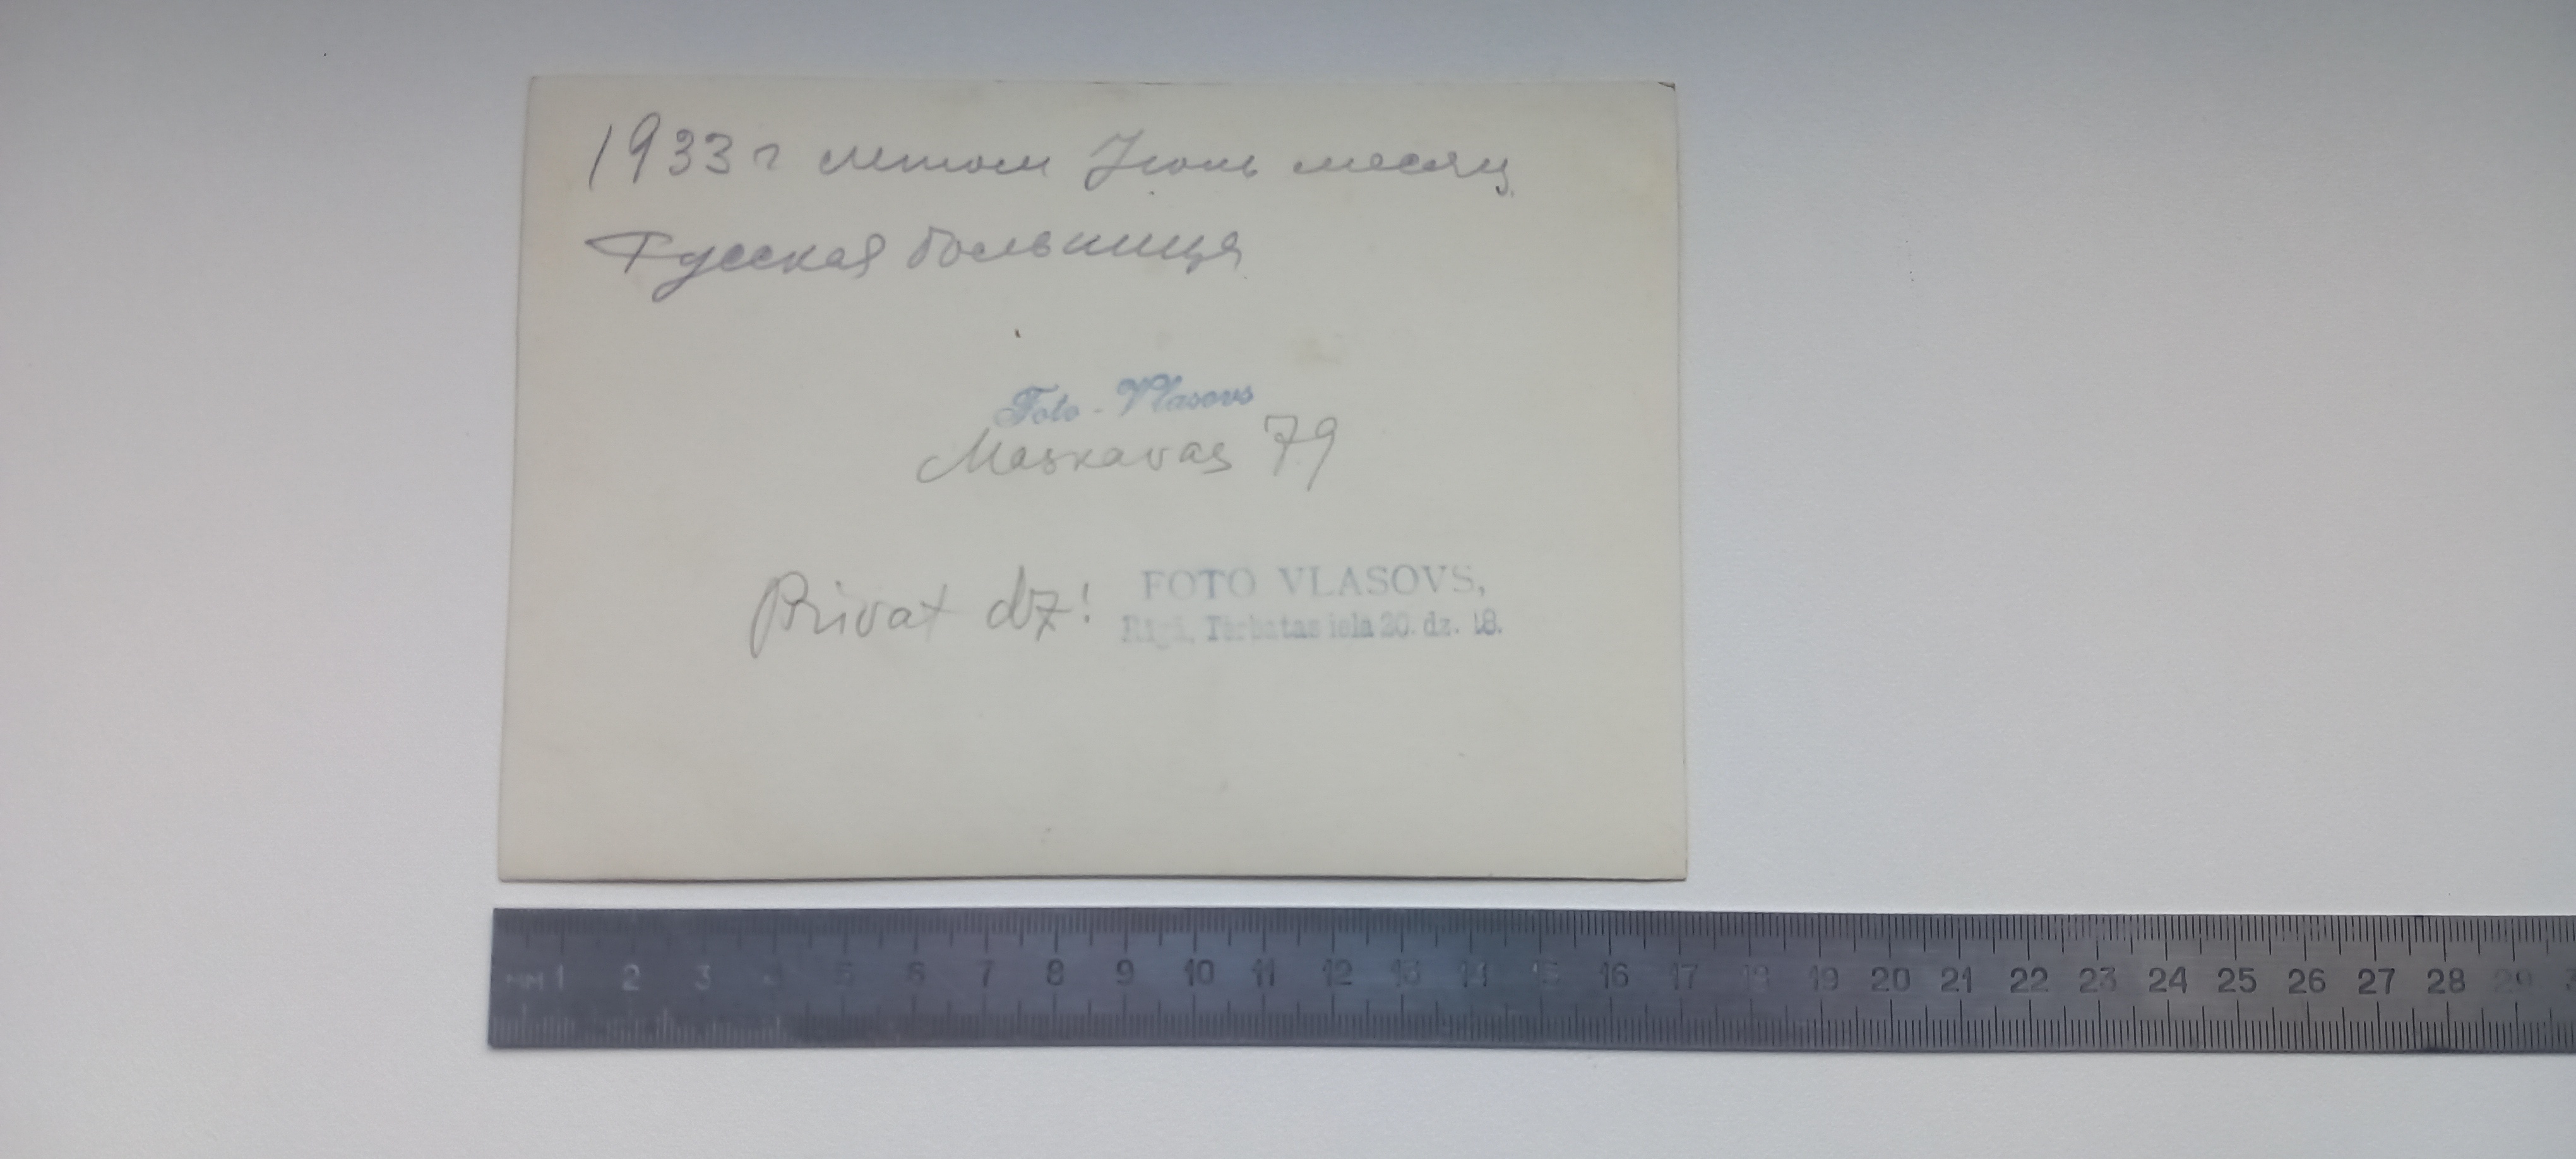 1933 г летом Июнь месяц
Русская больница
Foto - Vlasovs
Maskavas 79
Privat dz! FOTO VLASOVS,
Rīgā, Tērbatas iela 20. dz. 18.
мм 1 2 3 4 5 6 7 8 9 10 11 12 13 14 15 16 17 18 19 20 21 22 23 24 25 26 27 28 29